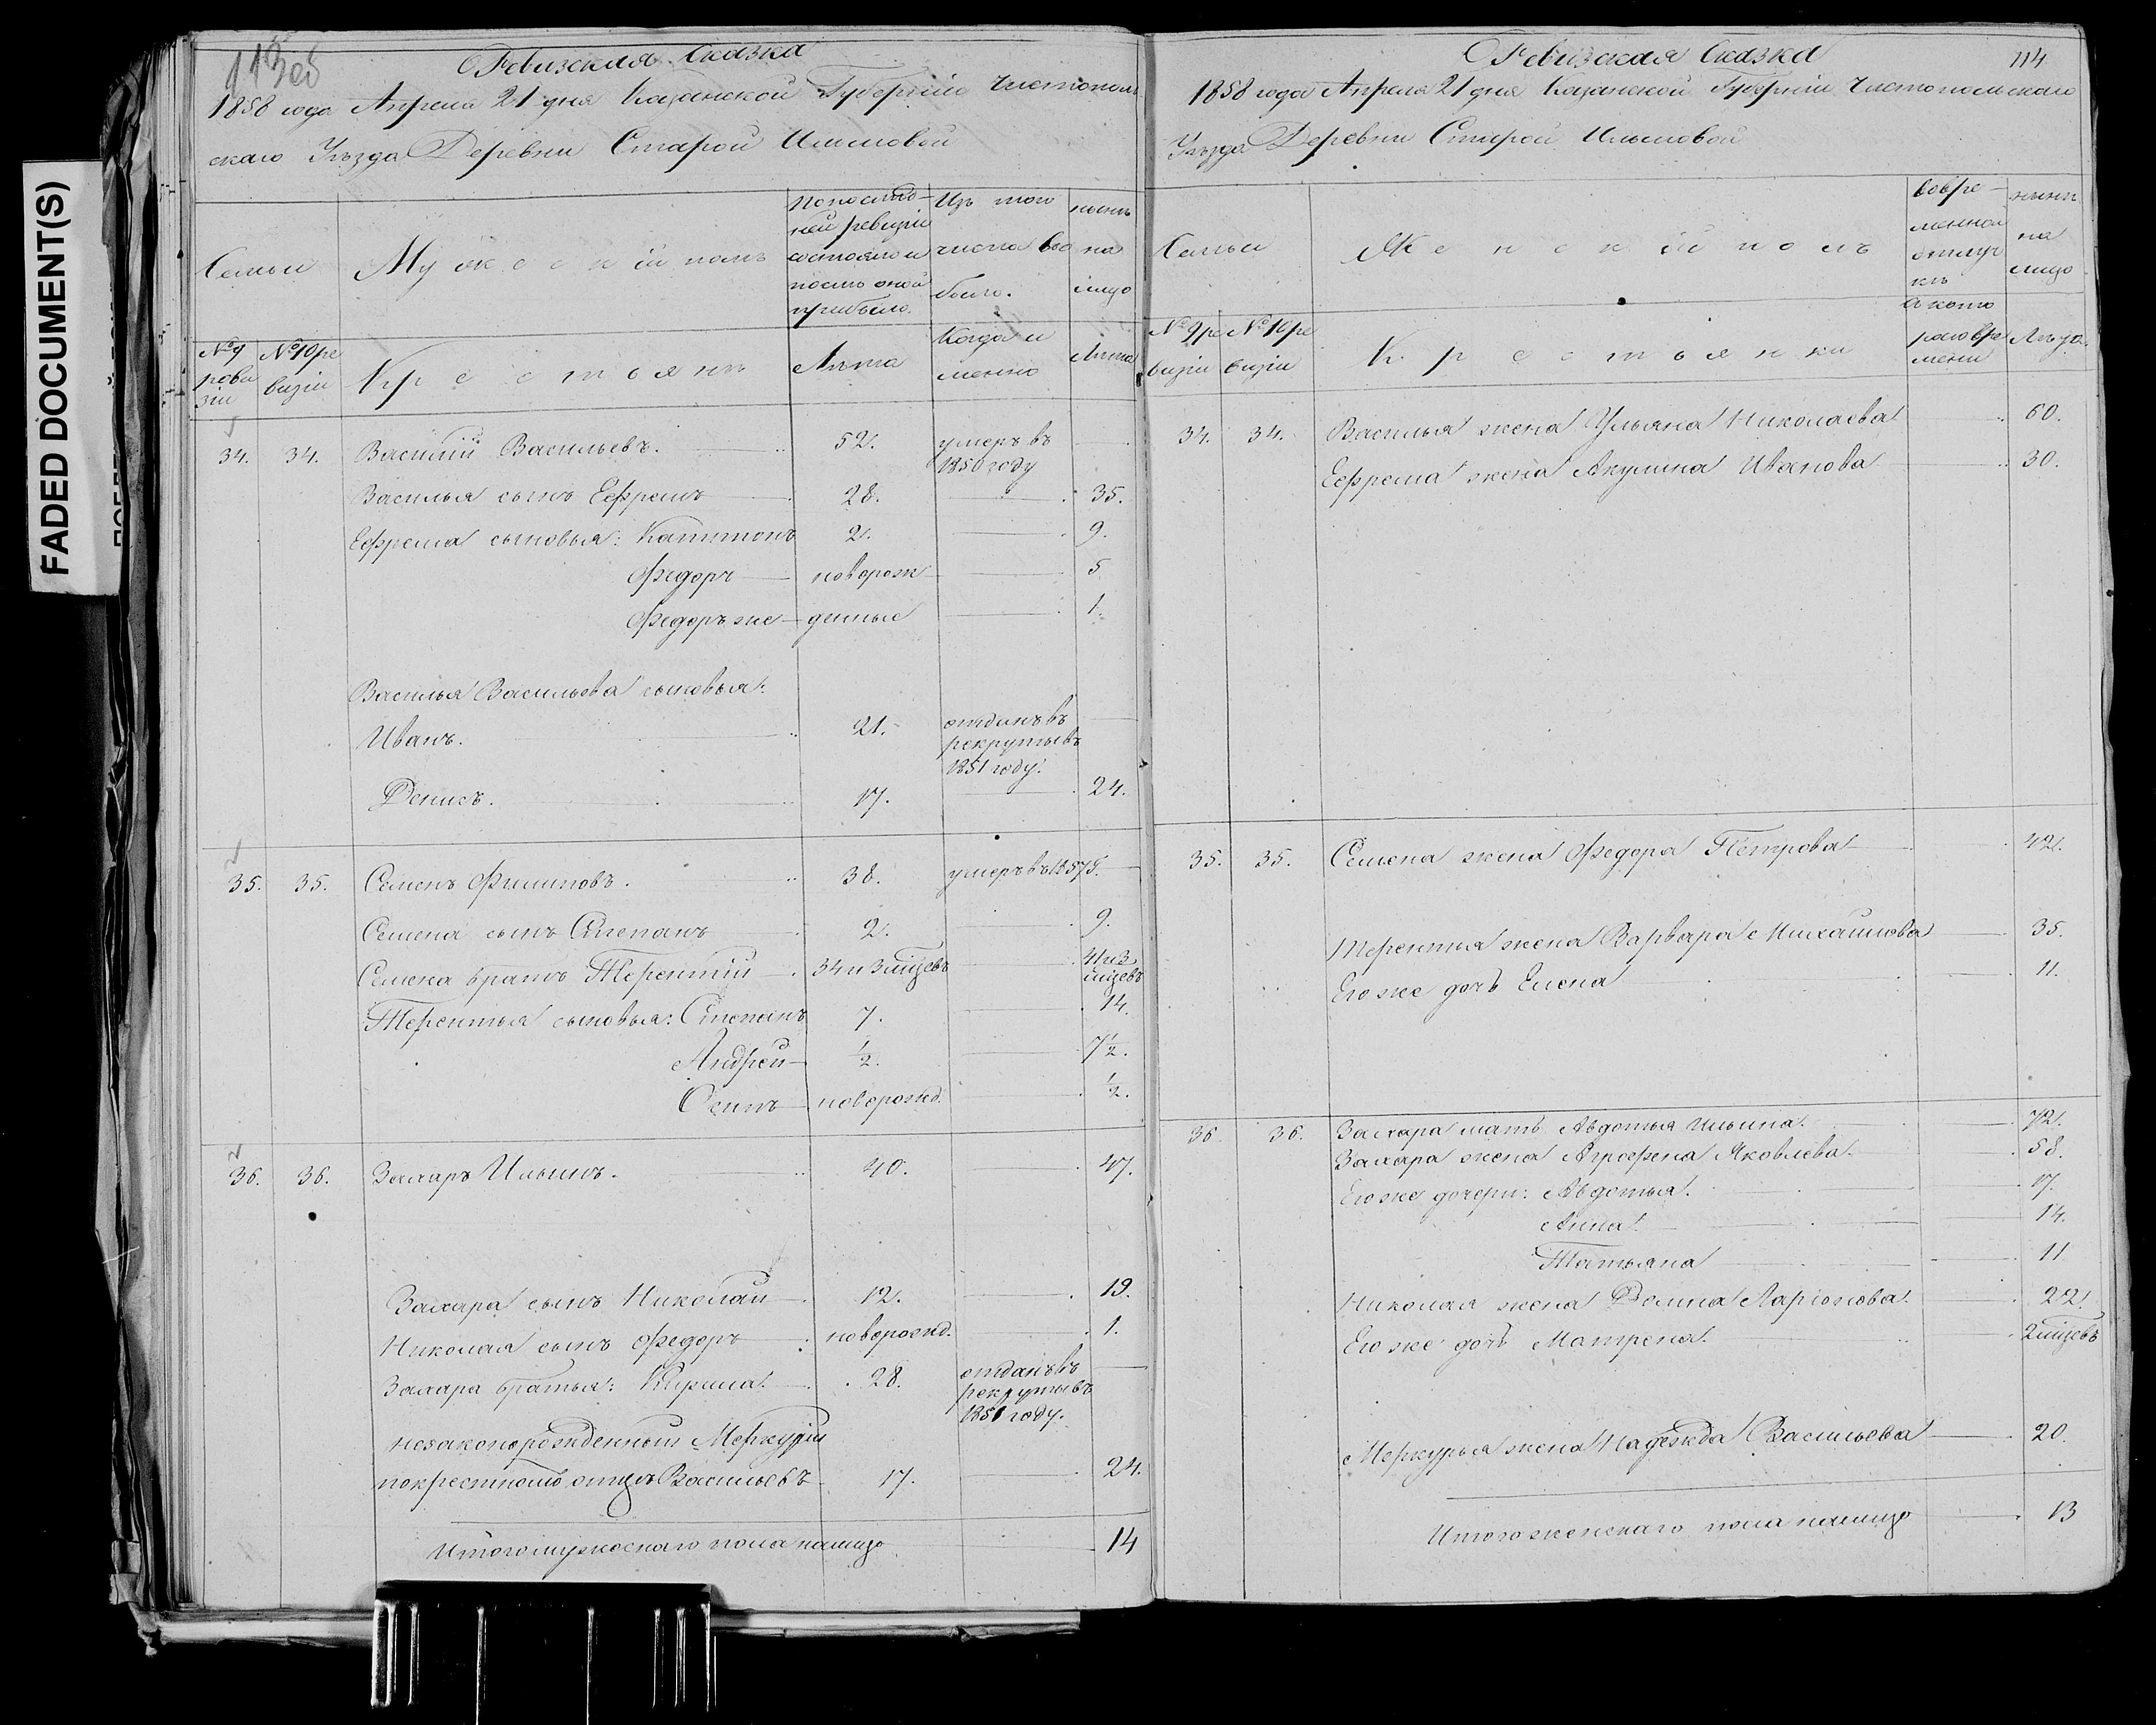 FADED DOCUMENT(S)
113об
Ревизская Сказка
1858 года Апреля 21 дня Казанской Губернiи Чистополь
скаго Уѣзда Деревни Старой Ильмовой
Семьи
Мужескiй полъ
По послѣд-
ней ревизiи
состояло и
послѣ оной
прибыло.
Изъ того
числа вы
было.
нынѣ
на
лицо
№ 9
реви
зiи
№ 10 ре
визiи
Крестьянъ
Лѣта
Когда и
именно
Лѣта
34. 34. Василiй Васильевъ. 52. умеръ въ
1850 году
Василья сынъ Ефремъ 28. 35.
Ефрема сыновья: Капитонъ 2. 9.
Федоръ новорож 5
Федоръ же денные 1.
Василья Васильева сыновья:
Иванъ. 21. отданъ въ
рекруты въ
1851 году.
Денисъ. 17. 24.
35. 35. Семенъ Филиповъ. 38. умеръ въ 1857 г.
Семена сынъ Степанъ 2. 9.
Семена братъ Терентiй 34 и 3 мѣцевъ 41 и 3
мѣцевъ
Терентья сыновья: Степанъ 7. 14.
Андрей ½. 7½.
Осипъ новорожд. ½.
36. 36. Захаръ Ильинъ. 40. 47.
Захара сынъ Николай 12. 19.
Николая сынъ Федоръ новорожд. 1.
Захара братья: Кирила. 28. отданъ въ
рекруты въ
1851 году.
незаконорожденный Меркурiй
по крестному отцу Васильевъ 17. 24.
Итого мужескаго пола на лицо 14
114
Ревизская Сказка
1858 года Апреля 21 дня Казанской Губернiи Чистопольскаго
Уѣзда Деревни Старой Ильмовой
Семьи
Женскiй полъ
во вре-
менной
отлуч
кѣ
нынѣ
на
лицо
№ 9 ре
визiи
№ 10 ре
визiи
Крестьянки
съ кото
раго вре
мени
Лѣта.
34. 34. Василья жена Ульяна Николаева 60.
Ефрема жена Акулина Иванова 30.
35. 35. Семена жена Федора Петрова 42.
Терентья жена Варвара Михайлова 35.
Его же дочь Елена 11.
36 36. Захара мать Авдотья Ильина. 72.
Захара жена Агрофена Яковлева. 58.
Его же дочери: Авдотья. 17.
Анна. 14.
Татьяна 11
Николая жена Домна Ларiонова. 22.
Его же дочь Матрена. 2 мѣцевъ
Меркурья жена Надежда Васильева 20.
Итого женскаго пола на лицо 13